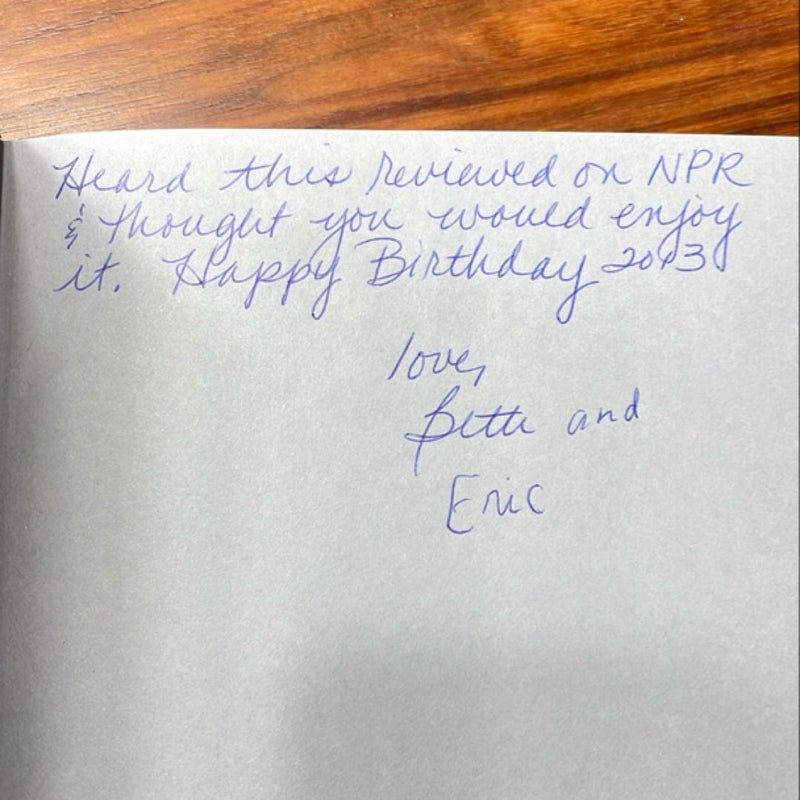 Heard this reviewed on NPR
& thought you would enjoy
it. Happy Birthday 2013
love,
Bette and
Eric